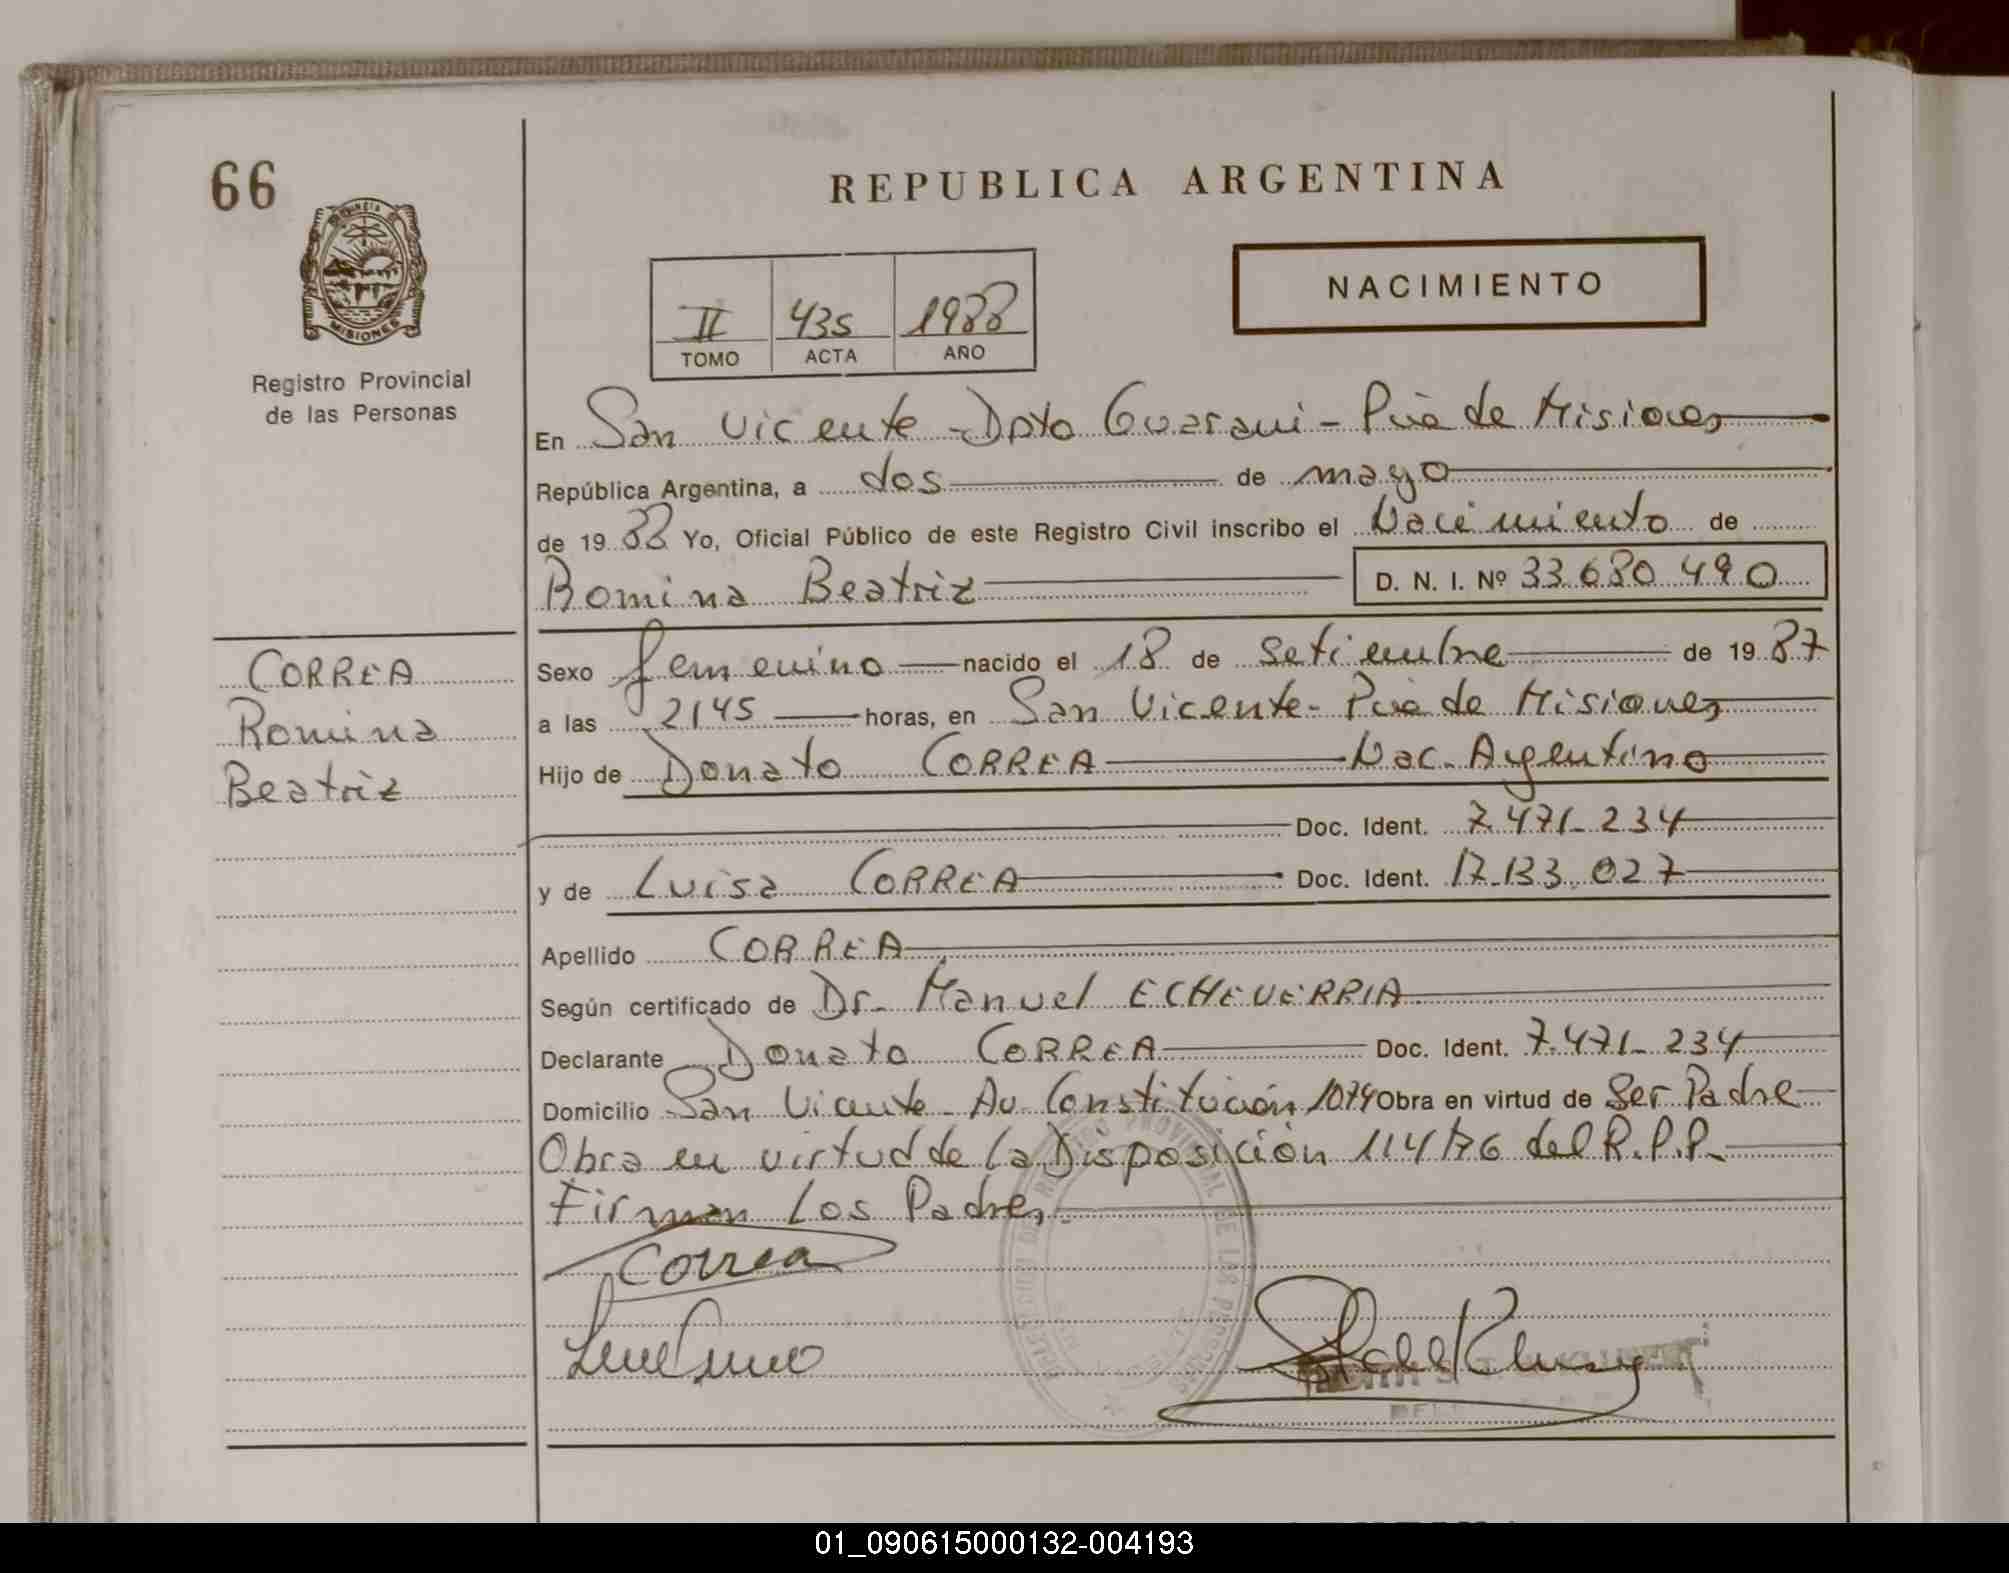 66
REPUBLICA ARGENTINA
PROVINCIA DE
MISIONES
NACIMIENTO
II 435 1988
TOMO ACTA AÑO
Registro Provincial
de las Personas
En San Vicente - Dpto Guarani - Pcia de Misiones
República Argentina, a dos de mayo
de 1988 Yo, Oficial Público de este Registro Civil inscribo el Nacimiento de
Romina Beatriz D. N. I. Nº 33.680.490
CORREA
Romina
Beatriz
Sexo femenino nacido el 18 de Setiembre de 1987
a las 2145 horas, en San Vicente - Pcia de Misiones
Hijo de Donato CORREA Nac. Argentino
Doc. Ident. 7.471.234
y de Luisa CORREA Doc. Ident. 17.133.027
Apellido CORREA
Según certificado de Dr. Manuel ECHEVERRIA
Declarante Donato CORREA Doc. Ident. 7.471.234
Domicilio San Vicente - Av Constitución 1074 Obra en virtud de Ser Padre
Obra en virtud de la Disposición 114/76 del R.P.P.
Firman Los Padres.
Correa
01_090615000132-004193